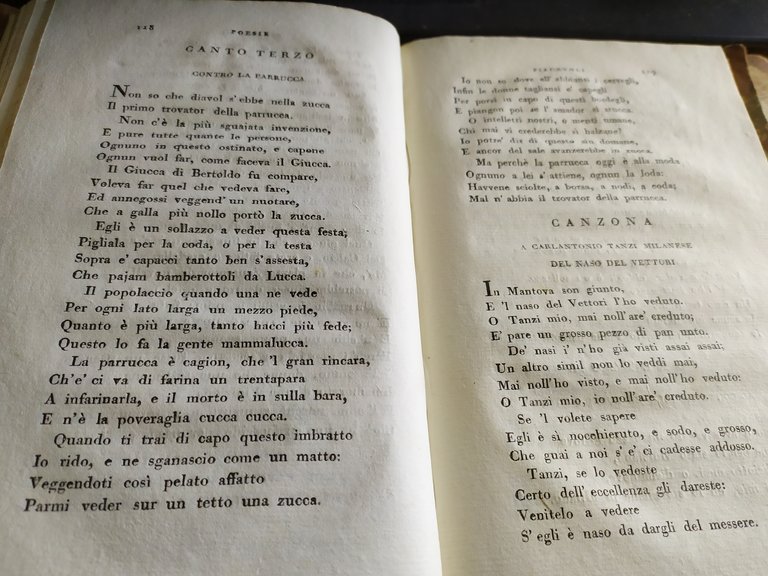 118
POESIE
CANTO TERZO
CONTRO LA PARRUCCA
Non so che diavol s'ebbe nella zucca
Il primo trovator della parrucca.
Non c'è la più sguajata invenzione,
E pure tutte quante le persone,
Ognuno in questo ostinato, e capone
Ognun vuol far, come faceva il Giucca.
Il Giucca di Bertoldo fu compare,
Voleva far quel che vedeva fare,
Ed annegossi veggend' un nuotare,
Che a galla più nollo portò la zucca.
Egli è un sollazzo a veder questa festa;
Pigliala per la coda, o per la testa
Sopra e' capacci tanto ben s'assesta,
Che pajam bamberottoli da Lucca.
Il popolaccio quando una ne vede
Per ogni lato larga un mezzo piede,
Quanto è più larga, tanto hacci più fede;
Questo lo fa la gente mammalucca.
La parrucca è cagion, che 'l gran rincara,
Ch'e' ci va di farina un trentapara
A infarinarla, e il morto è in sulla bara,
E n'è la poveraglia cucca cucca.
Quando ti trai di capo questo imbratto
Io rido, e ne sganascio come un matto:
Veggendoti così pelato affatto
Parmi veder sur un tetto una zucca.
PIACEVOLI
119
Io non so dove all' abbiansi i cervegli,
Infin le donne tagliansi e' capegli
Per porsi in capo di questi bordegli,
E piangon poi se l' amador si stucca.
O intelletti nostri, o menti umane,
Chi mai vi crederebbe sì balzane?
Io potre' dir di questo sin domane,
E ancor del sale avanzerebbe in zucca.
Ma perchè la parrucca oggi è alla moda
Ognuno a lei s' attiene, ognun la loda:
Havvene sciolte, a borsa, a nodi, a coda;
Mal n' abbia il trovator della parrucca.
CANZONA
A CARLANTONIO TANZI MILANESE
DEL NASO DEL VETTORI
In Mantova son giunto,
E 'l naso del Vettori l'ho veduto.
O Tanzi mio, mai noll' are' creduto;
E' pare un grosso pezzo di pan unto.
De' nasi i' n'ho già visti assai assai;
Un altro simil non lo veddi mai,
Mai noll'ho visto, e mai noll'ho veduto:
O Tanzi mio, io noll' are' creduto.
Se 'l volete sapere
Egli è sì nocchieruto, e sodo, e grosso,
Che guai a noi s' e' ci cadesse addosso.
Tanzi, se lo vedeste
Certo dell' eccellenza gli dareste:
Venitelo a vedere
S' egli è naso da dargli del messere.